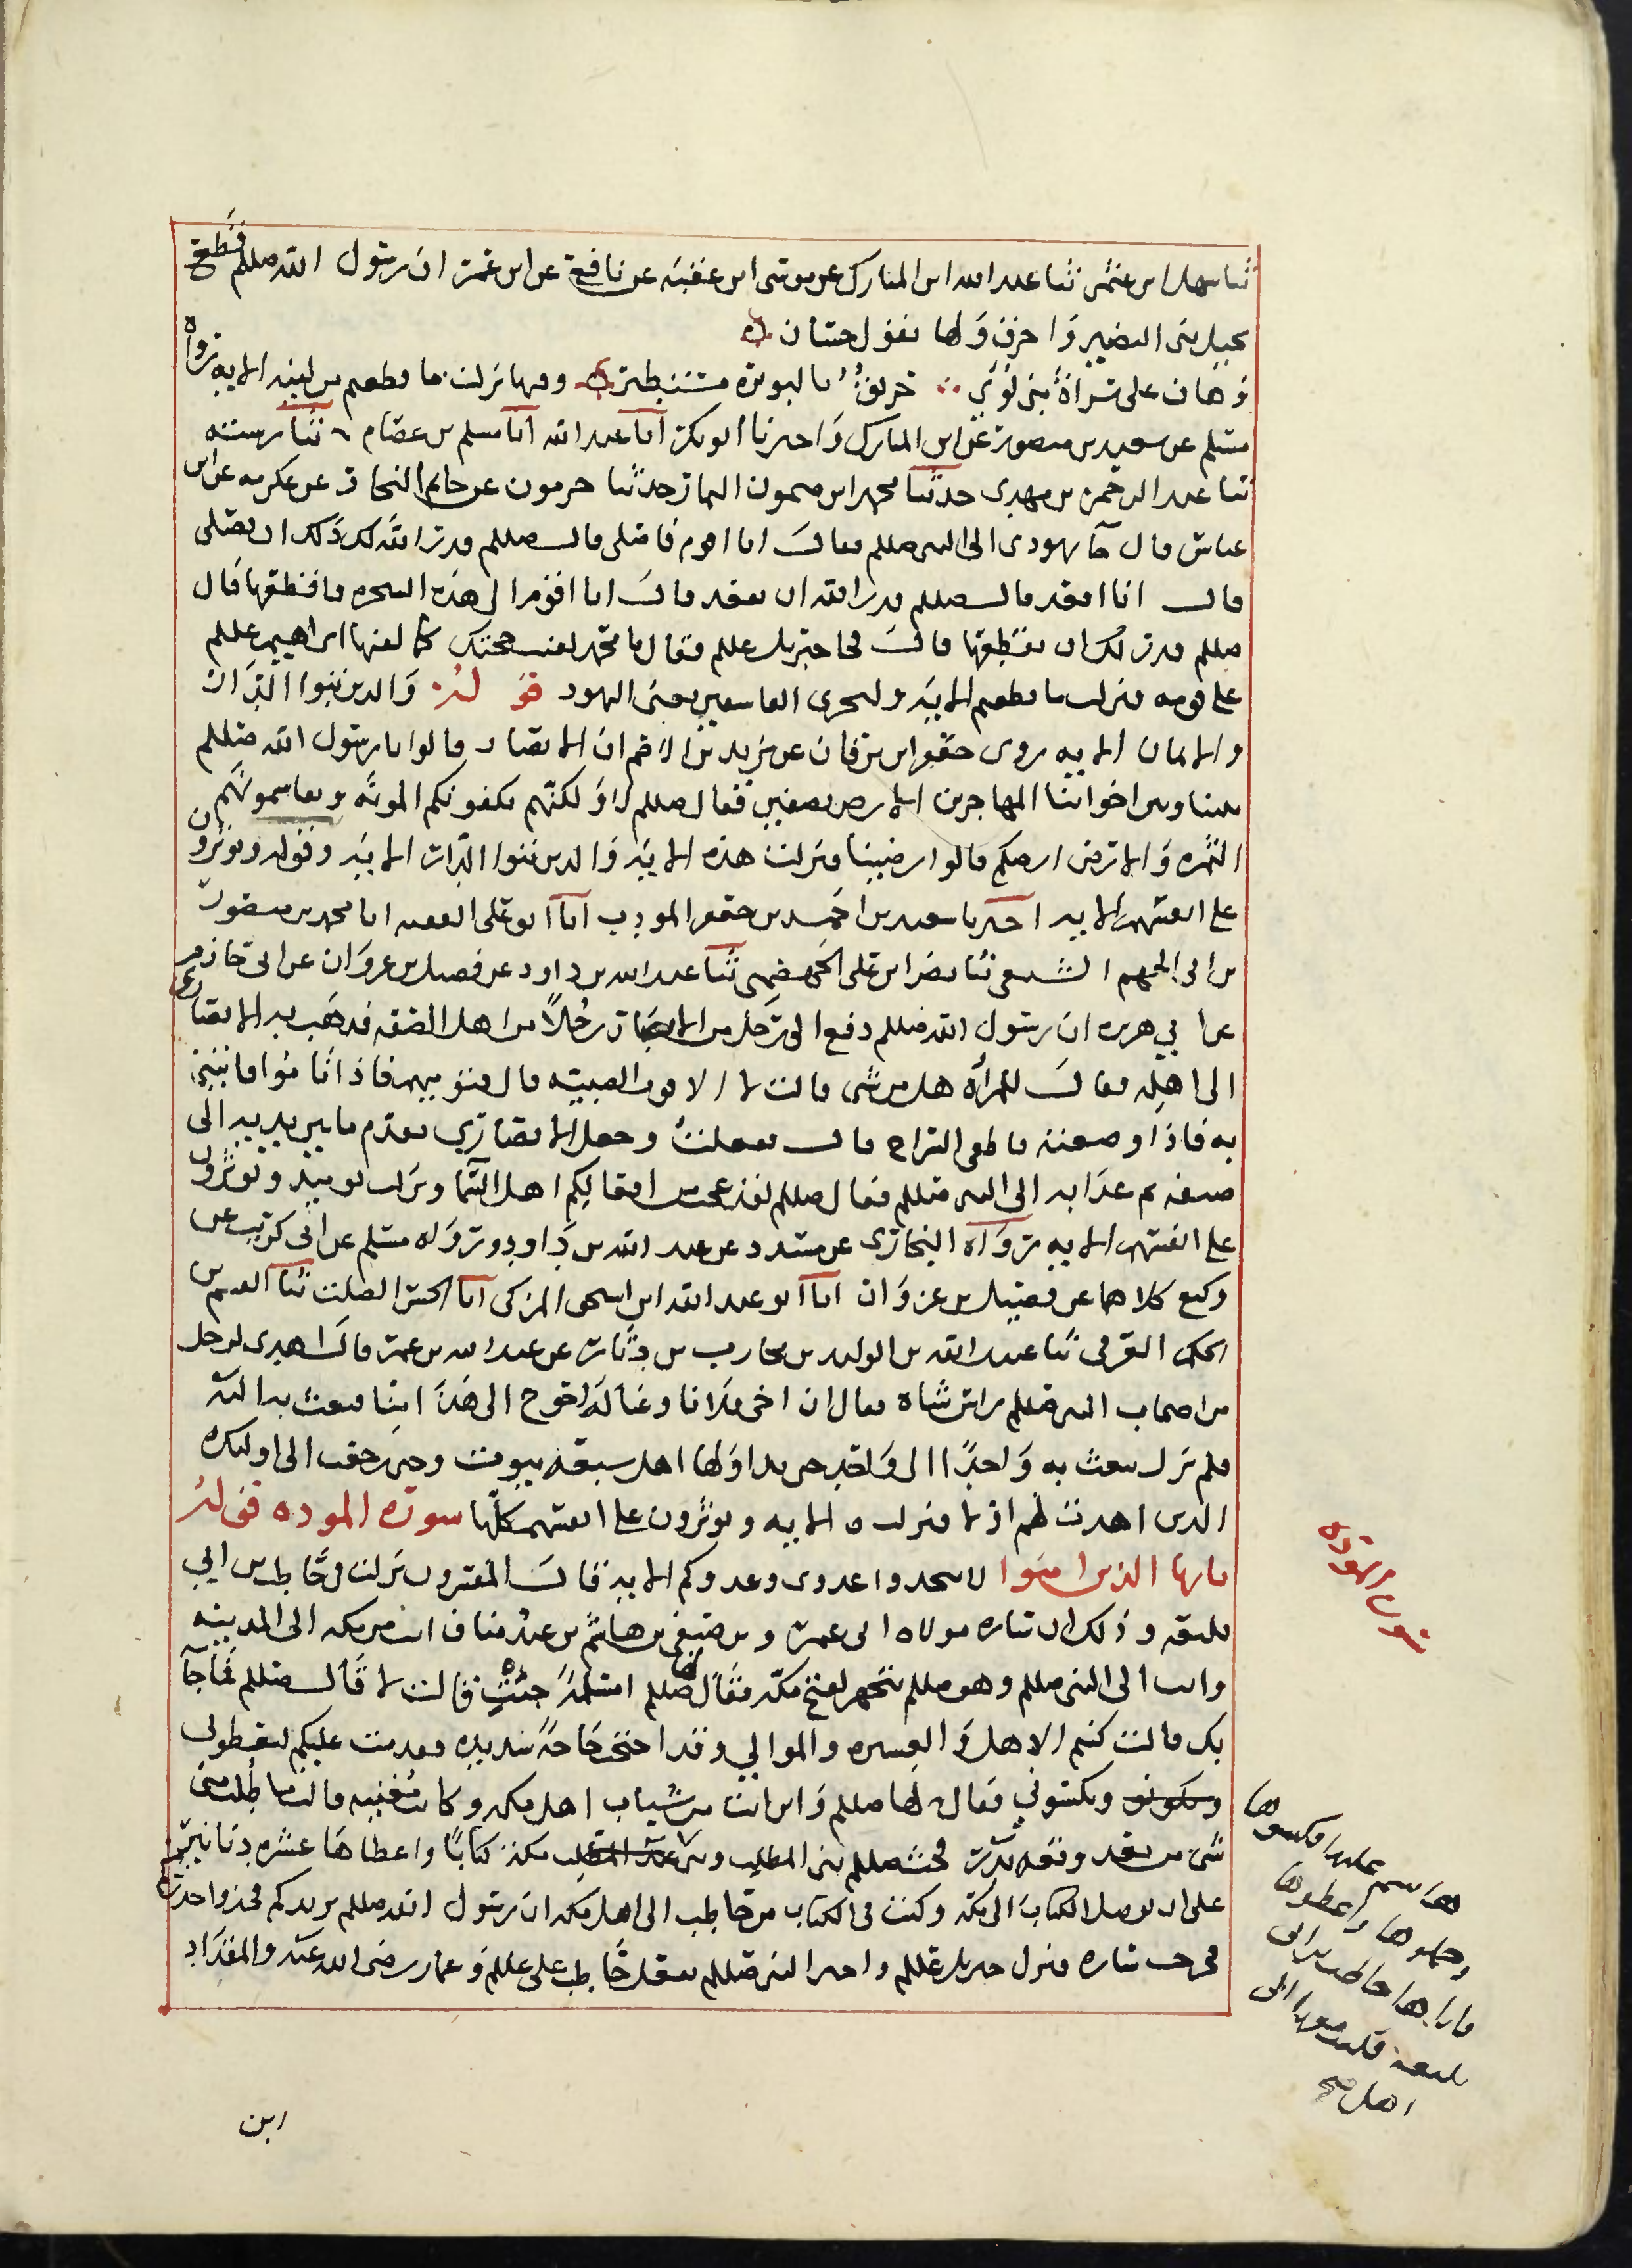 ثنا سهل ابن عثمن ثنا عبد الله ابن المبارك عن موسى ابن عقبه عن نافع عن ابن عمر ان رسول الله صللم قطع
نخيل بنى النضير وَاحرق وَلها يقول حسان
وَهان على سراة بنى لؤي حريق بالبويره مستطير وفيها نزلت ما قطعتم من لينه الايه رواه
مسلم عن سعيد بن منصور عن ابن المبارك وَاخبرنا ابو بكر انا عبد الله انا مسلم بن عصام ثنا رسته
ثنا عبد الرحمن بن مهدى حدثنا محمد ابن ميمون التمار حدثنا جرمون عن حاتم النجار عن عكرمه عن ابن
عباس قال جآ يهودى الى النبي صللم فقال انا اقوم فاصلى قال صللم قدر الله لك ذلك ان تصلى
قال انا اقعد قال صللم قدر الله ان تقعد قال انا اقوم الى هذه الشجره فاقطعها قال
صللم قدر لك ان تقطعها قال فجا جبريل عللم فقال يا محمد لقنت حجتك كما لقنها ابراهيم عللم
على قومه فنزلت ما قطعتم الايه وليخزى الفاسقين يعنى اليهود قوله والذين تبوا الدار
والايمان الايه روى جعفر ابن برقان عن يزيد بن الاصم ان الانصار قالوا يا رسول الله صللم
بيننا وبين اخواننا المهاجرين الارض نصفين فقال صللم لا وَلكنهم يكفونكم المونه ويقاسمونكم
الثمره وَالارض ارضكم قالوا رضينا فنزلت هذه الايه وَالذين تبوا الدار الايه وقوله ويوثرون
على انفسهم الايه اخبرنا سعيد بن احمد بن جعفر المودب انا ابو على الفقيه انا محمد بن منصور
بن ابى الجهم السبيعى ثنا نصر ابن على الجهضمى ثنا عبد الله بن داود عن فضيل بن غزوان عن ابى حازم
عن ابي هريره ان رسول الله صللم دفع الى رجل من الانصار رجلاً من اهل الصفه فذهب به الانصارى
الى اهله فقال للمرأه هل من شى قالت لا الا قوت الصبيه قال فنوميهم فاذا ناموا فاتينى
به فاذا وضعته فاطفى السراج قال ففعلت وجعل الانصاري يقدم ما بين يديه الى
ضيفه ثم غدا به الى النبي صللم فقال صللم لقد عجب من افعالكم اهل السما ونزلت يومئذ ويوثرون
على انفسهم الايه رواه البخارى عن مسدد عن عبد الله بن داود ورواه مسلم عن ابى كريب عن
وكيع كلاهما عن فضيل بن غزوان انا ابو عبد الله ابن اسحق المزكى انا الحسن الصلت ثنا القسم بن
الحكم العرنى ثنا عبيد الله بن الوليد بن محارب بن دثار عن عبد الله بن عمر قال اهدى لرجل
من اصحاب النبي صللم راس شاه فقال ان اخى فلانا وعياله احوج الى هذا منا فبعث به اليه
فلم يزل يبعث به وَاحدًا الى وَاحد حتى تداولها اهل سبعه بيوت وحتى رجعت الى اوليك
الذين اهدت لهم اولا فنزلت الايه ويوثرون على انفسهم كلها سورة الموده قوله
يايها الذين امنوا لا تتخذوا عدوى وعدوكم الايه قال المفسرون نزلت فى حاطب بن ابي
بلتعه وذلك ان ساره مولاه ابى عمر و بن صيفي بن هاشم بن عبد مناف اتت من مكه الى المدينه
واتت الى النبى صللم وهو صللم يتجهز لفتح مكه فقال لها صللم امسلمة جئتِ قالت لا قال صللم فما جآ
بك قالت كنتم الاهل وَالعشيره والموالي وقد احتجت حاجة شديده فقدمت عليكم لتعطونى
وتكسوني فقال لها صللم وَاين انت من شباب اهل مكه وكانت مغنيه قالت ما طلب منى
شى من بعد وقعه بدر فحث صللم بنى المطلب وبنى عبد المطلب فكتب كتابًا واعطاها عشره دنانير
على ان توصل الكتاب الى مكه وكتب فى الكتاب من حاطب الى اهل مكه ان رسول الله صللم يريدكم فخذوا حذركم
فخرجت ساره فنزل جبريل عللم واخبر النبي صللم بفعل حاطب على عللم وَعمار رضى الله عنه والمقداد
سورة الموده
هاشم عليها فكسوها
وحملوها واعطوها
فاتاها حاطب بن ابى
بلتعه فكتب معها الى
اهل صح
ابن